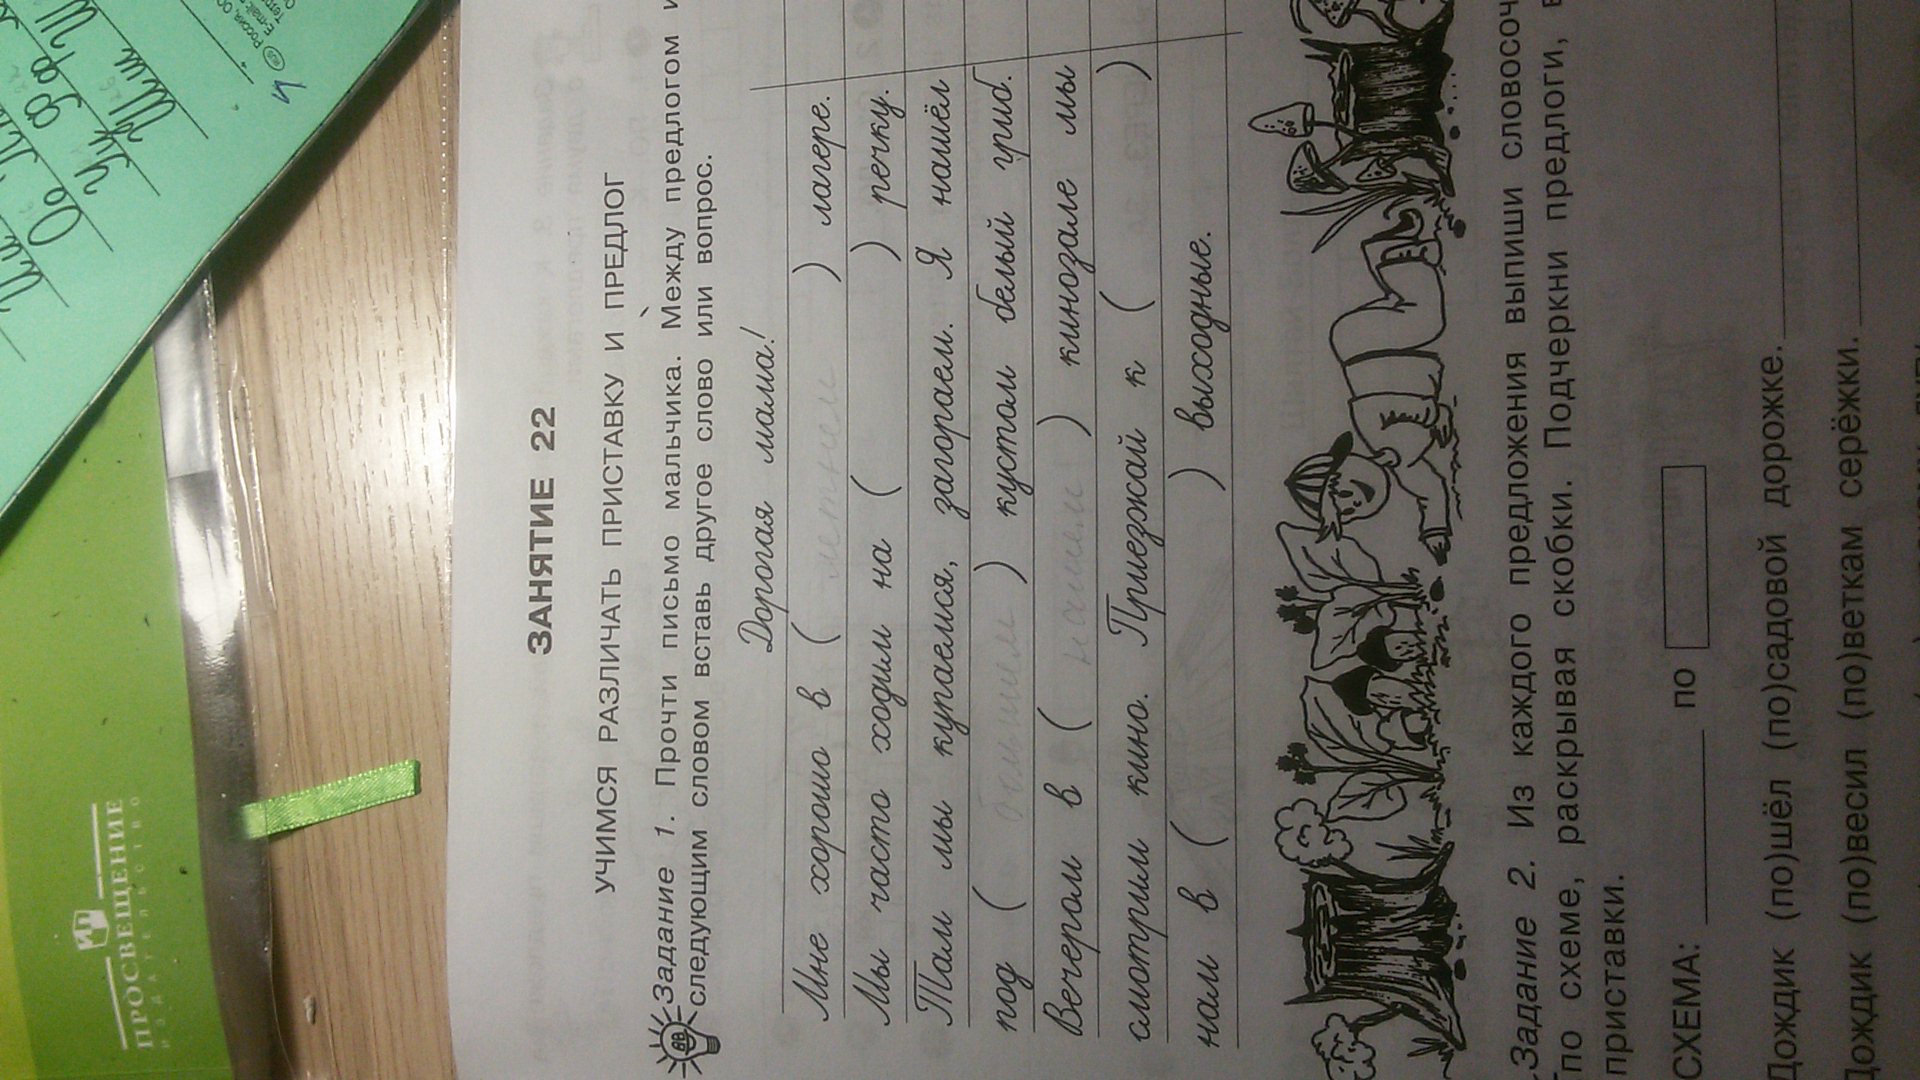 ЗАНЯТИЕ 22
УЧИМСЯ РАЗЛИЧАТЬ ПРИСТАВКУ И ПРЕДЛОГ
Задание 1. Прочти письмо мальчика. Между предлогом и
следующим словом вставь другое слово или вопрос.
Дорогая мама!
Мне хорошо в ( летнем ) лагере.
Мы часто ходим на ( ) речку.
Там мы купаемся, загораем. Я нашёл
под ( большим ) кустом белый гриб.
Вечером в ( нашем ) кинозале мы
смотрим кино. Приезжай к ( )
нам в ( ) выходные.
Задание 2. Из каждого предложения выпиши словосоч
по схеме, раскрывая скобки. Подчеркни предлоги,
приставки.
СХЕМА: ____ по
Дождик (по)шёл (по)садовой дорожке.
Дождик (по)весил (по)веткам серёжки.
ПРОСВЕЩЕНИЕ
ИЗДАТЕЛЬСТВО